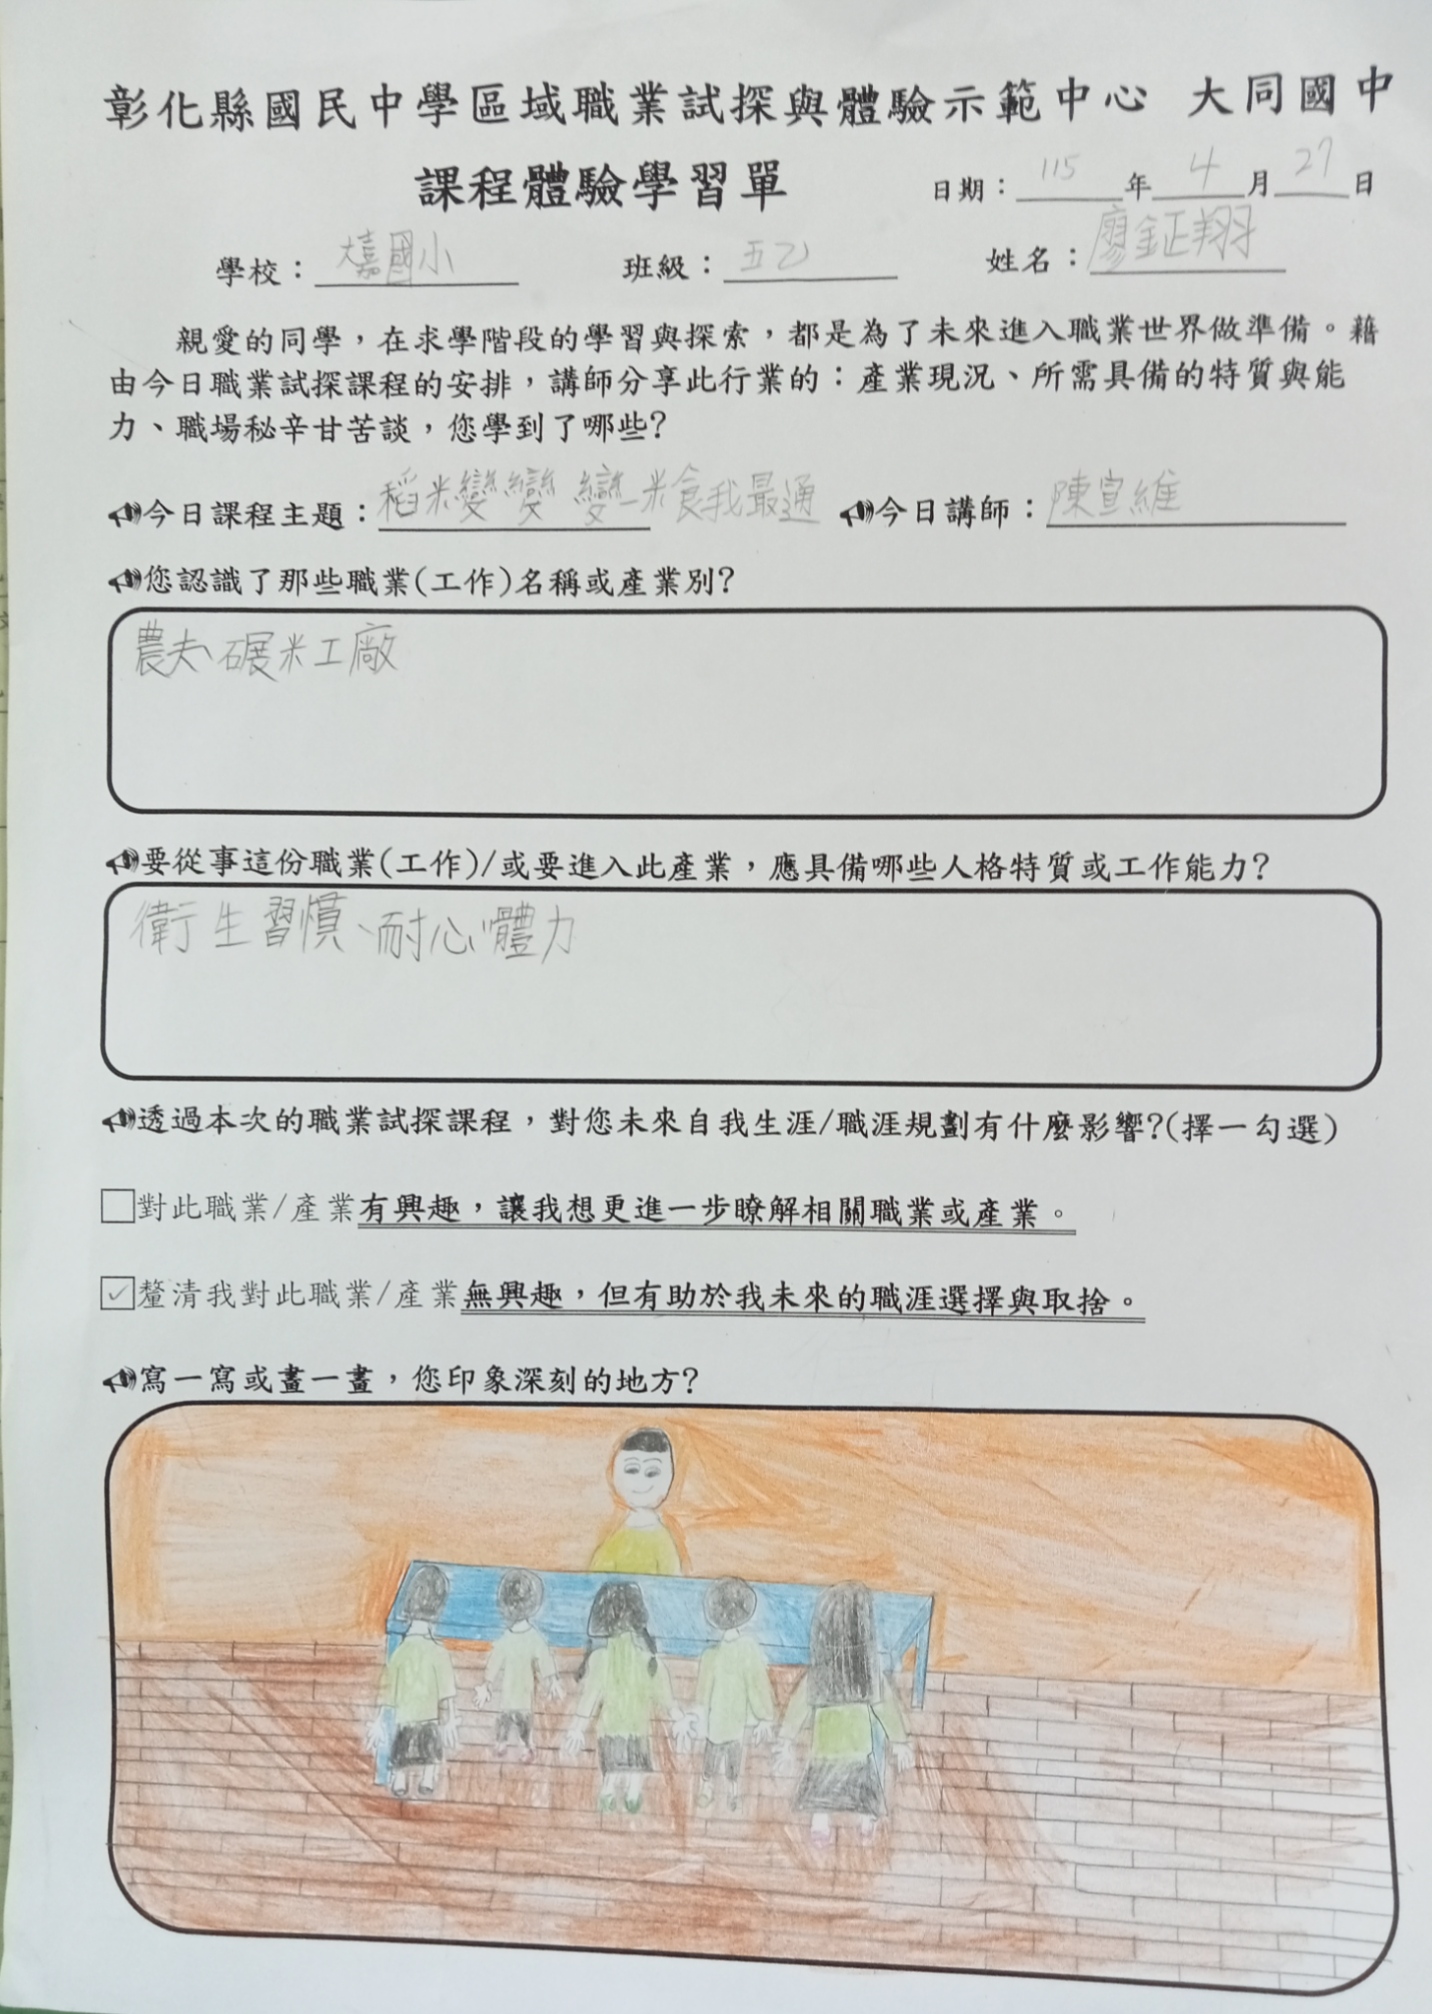 彰化縣國民中學區域職業試探與體驗示範中心 大同國中
課程體驗學習單
日期：115年4月27日
學校：大嘉國小 班級：五乙 姓名：廖鉦翔
親愛的同學，在求學階段的學習與探索，都是為了未來進入職業世界做準備。藉
由今日職業試探課程的安排，講師分享此行業的：產業現況、所需具備的特質與能
力、職場秘辛甘苦談，您學到了哪些?
今日課程主題：稻米變變變-米食我最通 今日講師：陳宣維
您認識了那些職業(工作)名稱或產業別?
農夫、碾米工廠
要從事這份職業(工作)/或要進入此產業，應具備哪些人格特質或工作能力?
衛生習慣、耐心、體力
透過本次的職業試探課程，對您未來自我生涯/職涯規劃有什麼影響?(擇一勾選)
□對此職業/產業有興趣，讓我想更進一步瞭解相關職業或產業。
☑釐清我對此職業/產業無興趣，但有助於我未來的職涯選擇與取捨。
寫一寫或畫一畫，您印象深刻的地方?